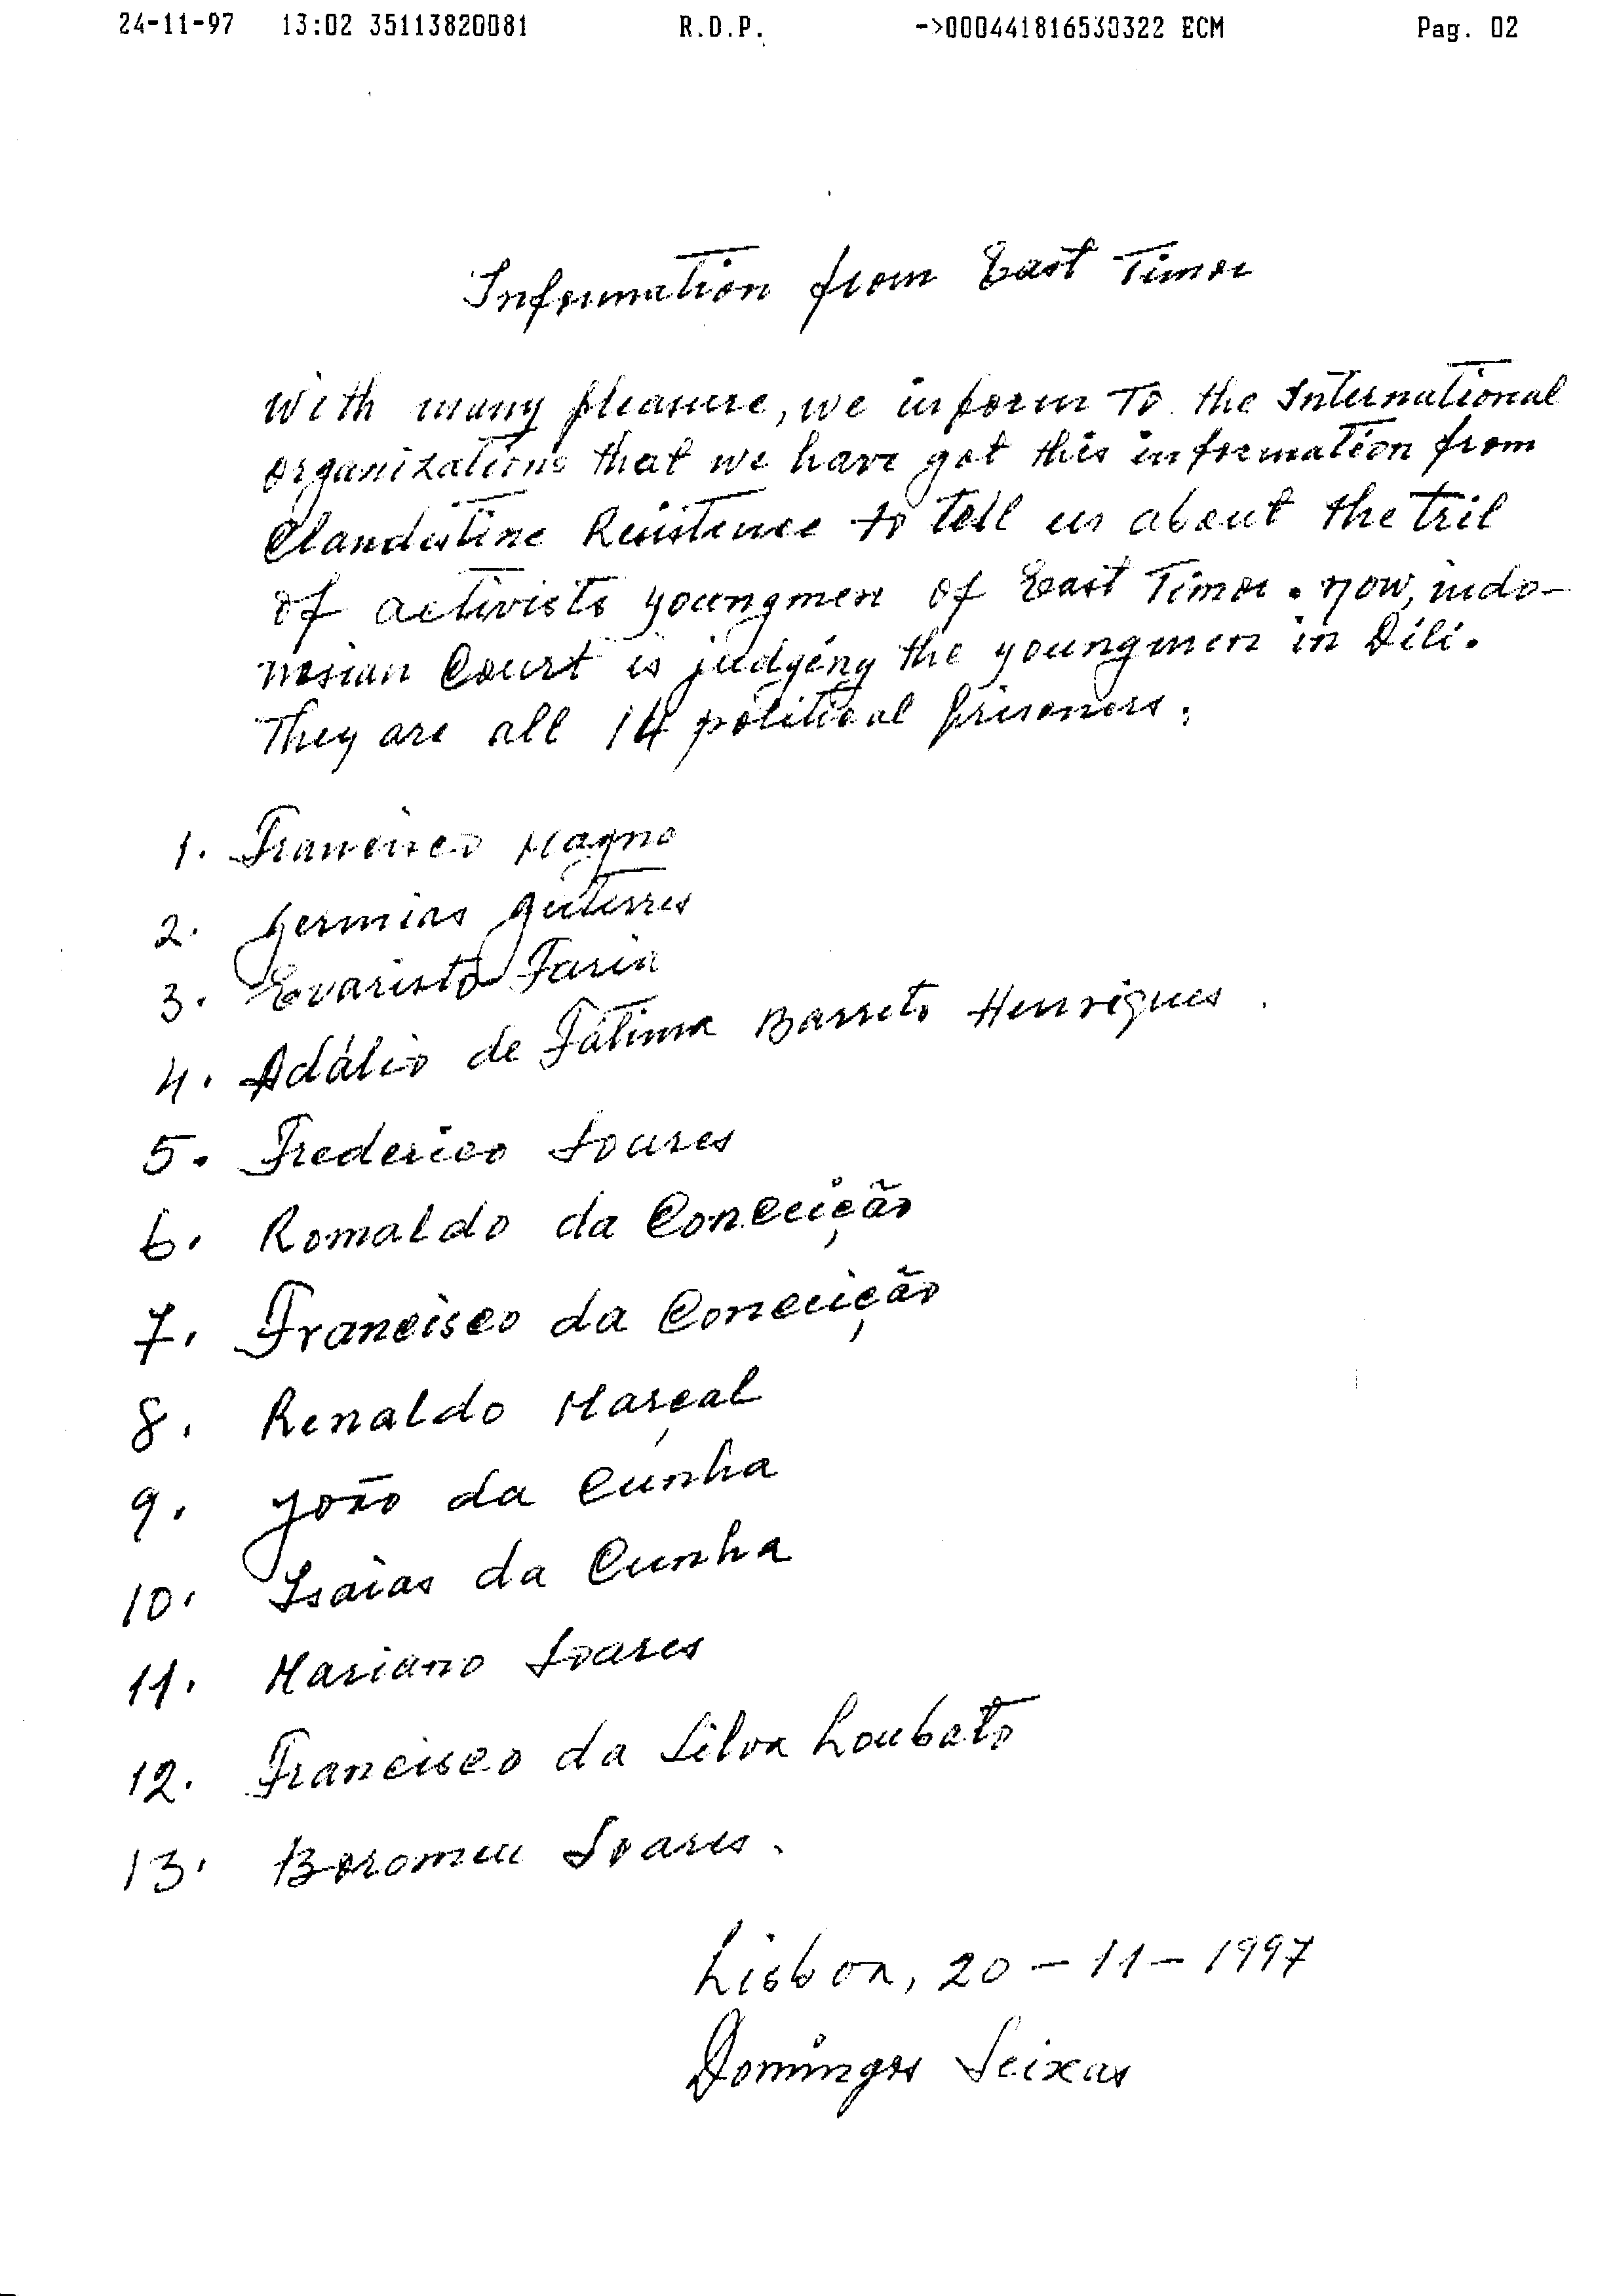 24-11-97 13:02 35113820081 R.D.P. ->000441816530322 ECM Pag. 02
Information from East Timor
With many pleasure, we inform to the International
organizations that we have got this information from
Clandestine Resistence to tell us about the tril
of activists youngmen of East Timor. now, indo-
nesian Court is judging the youngmen in Dili.
They are all 14 political prisoners.
1. Francisco Magno
2. Germias Guterres
3. Evaristo Faria
4. Adálio de Fátima Barreto Henriques.
5. Frederico Soares
6. Romaldo da Conceição
7. Francisco da Conceição
8. Renaldo Marçal
9. João da Cunha
10. Isaias da Cunha
11. Mariano Soares
12. Francisco da Silva Loubato
13. Boromeu Soares.
Lisboa, 20-11-1997
Domingos Seixas